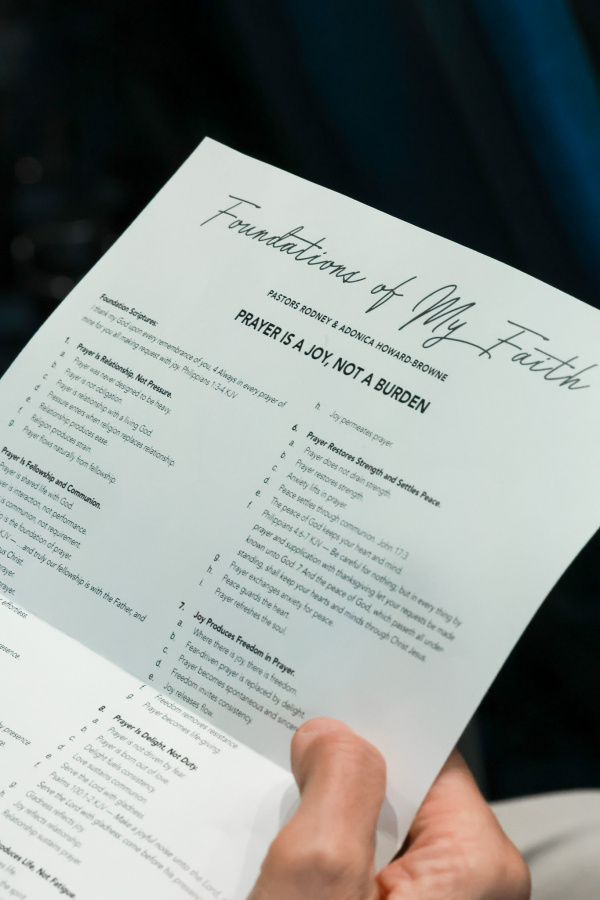 Foundations of My Faith
PASTORS RODNEY & ADONICA HOWARD-BROWNE
PRAYER IS A JOY, NOT A BURDEN
Foundation Scriptures:
I thank my God upon every remembrance of you, 4 Always in every prayer of
mine for you all making request with joy. Philippians 1:3-4 KJV
1. Prayer Is Relationship, Not Pressure.
a. Prayer was never designed to be heavy.
b. Prayer is not obligation.
c. Prayer is relationship with a living God.
d. Pressure enters when religion replaces relationship.
e. Relationship produces ease.
f. Religion produces strain.
g. Prayer flows naturally from fellowship.
Prayer Is Fellowship and Communion.
Prayer is shared life with God.
is interaction, not performance.
is communion, not requirement.
is the foundation of prayer.
KJV — ...and truly our fellowship is with the Father, and
Jesus Christ.
prayer.
prayer.
effortless.
presence
by presence
oduces Life, Not Fatigue.
life
the spirit
h. Joy permeates prayer.
6. Prayer Restores Strength and Settles Peace.
a. Prayer does not drain strength.
b. Prayer restores strength.
c. Anxiety lifts in prayer.
d. Peace settles through communion.
e. The peace of God keeps your heart and mind.
f. Philippians 4:6-7 KJV — Be careful for nothing; but in every thing by
prayer and supplication with thanksgiving let your requests be made
known unto God. 7 And the peace of God, which passeth all under-
standing, shall keep your hearts and minds through Christ Jesus.
g. Prayer exchanges anxiety for peace.
h. Peace guards the heart.
i. Prayer refreshes the soul.
7. Joy Produces Freedom in Prayer.
a. Where there is joy, there is freedom.
b. Fear-driven prayer is replaced by delight.
c. Prayer becomes spontaneous and sincere
d. Freedom invites consistency.
e. Joy releases flow.
f. Freedom removes resistance
g. Prayer becomes life-giving
8. Prayer Is Delight, Not Duty.
a. Prayer is not driven by fear.
b. Prayer is born out of love
c. Delight fuels consistency.
d. Love sustains communion.
e. Serve the Lord with gladness.
f. Psalms 100:1-2 KJV — Make a joyful noise unto the Lord
Serve the Lord with gladness: come before his presence
g. Gladness reflects joy.
Joy reflects relationship.
Relationship sustains prayer.